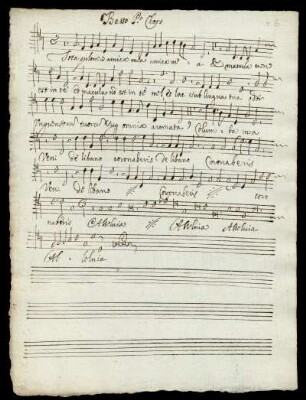 Basso P.º Choro
Tota pulcra es amica mea amica m[...] a et macula non
est in te et macula no est in te mel et lac sub lingua tua odor
unguentorum tuorum super omnia aromata Colum ba mea
Veni de libano coronaberis de libano Coronaberis
Veni de libano Coronaberis coro
naberis Alleluia Alleluia Alleluia
Al leluia